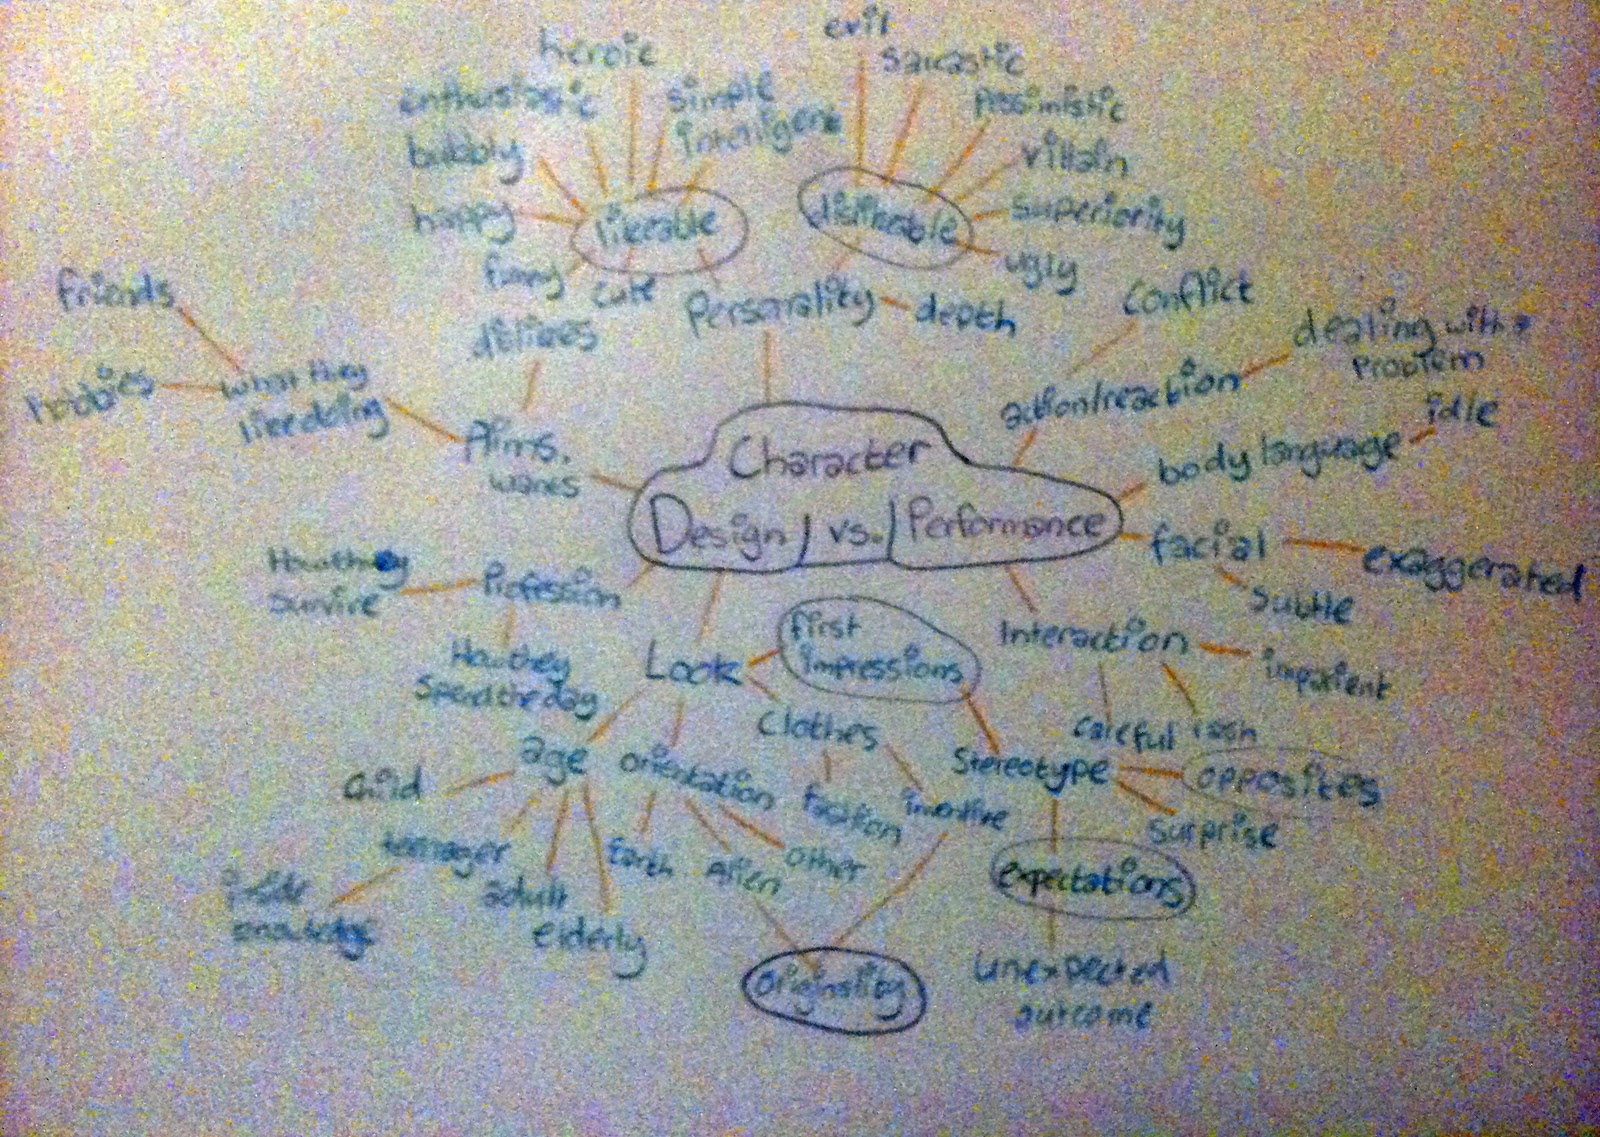 evil
heroic
sarcastic
enthusiastic
simple
pessimistic
intelligent
bubbly
villain
happy
likeable
dislikeable
superiority
funny
cute
ugly
Personality
depth
conflict
friends
dislikes
dealing with a
problem
hobbies
what they
like doing
action/reaction
idle
Aims,
wants
Character
body language
Design / vs. / Performance
facial
exaggerated
subtle
How they
survive
Profession
first
impressions
Interaction
impatient
How they
spend the day
Look
Clothes
careful
rash
age
orientation
Stereotype
opposites
child
fashion
inventive
surprise
teenager
Earth
Alien
other
expectations
adult
elderly
knowledge
originality
unexpected
outcome